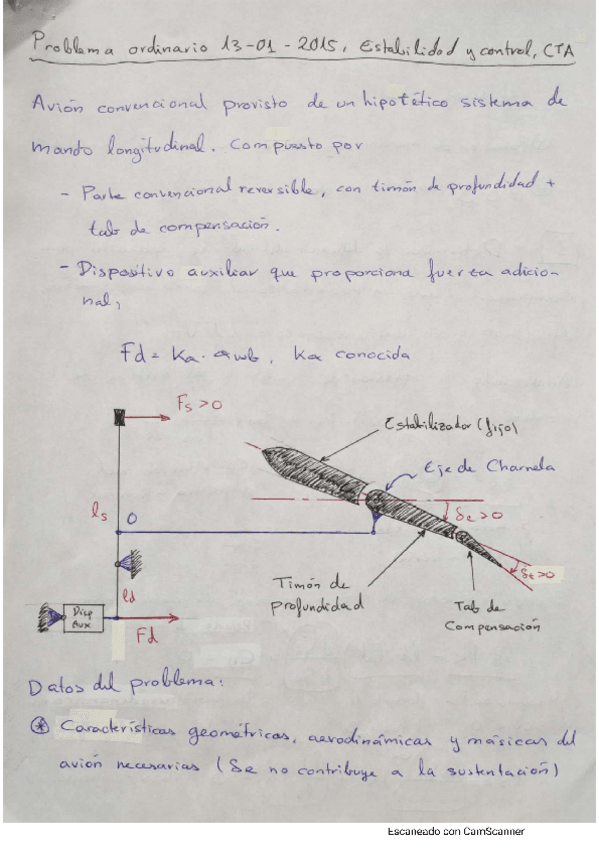 Problema ordinario 13-01-2015, Estabilidad y control, CTA
Avión convencional provisto de un hipotético sistema de
mando longitudinal. Compuesto por
- Parte convencional reversible, con timón de profundidad +
tab de compensación.
- Dispositivo auxiliar que proporciona fuerza adicio-
nal,
Fd = Ka · αwb, Ka conocida
Fs > 0
Estabilizador (fijo)
Eje de Charnela
ls
O
δe > 0
δt > 0
ld
Timón de
profundidad
Tab de
Compensación
Disp
Aux
Fd
Datos del problema:
* Características geométricas, aerodinámicas y másicas del
avión necesarias (δe no contribuye a la sustentación)
Escaneado con CamScanner